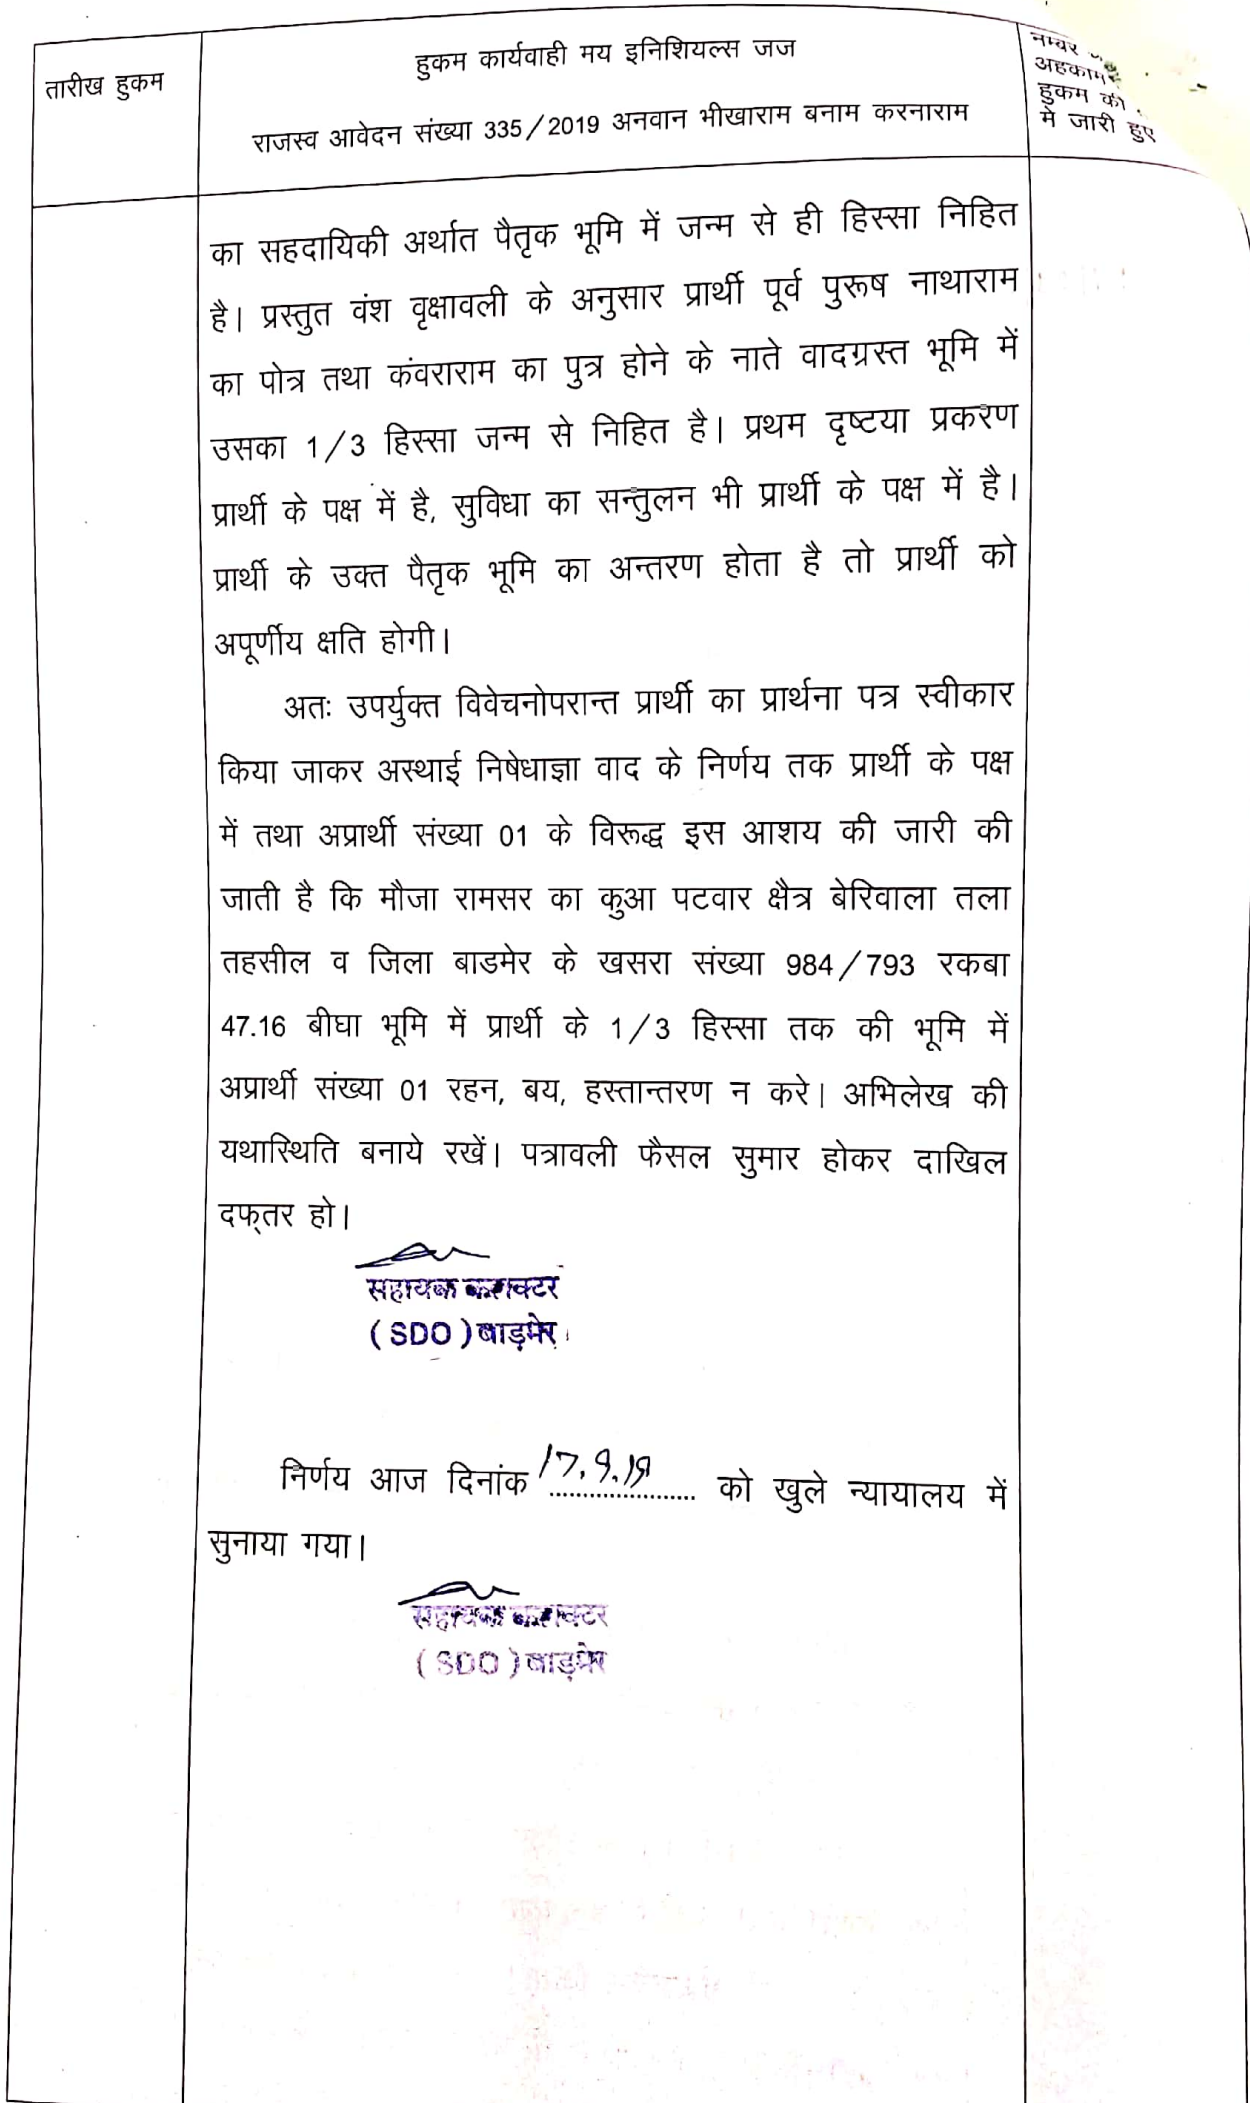 तारीख हुकम
हुकम कार्यवाही मय इनिशियल्स जज
राजस्व आवेदन संख्या 335/2019 अनवान भीखाराम बनाम करनाराम
नम्बर
अहकाम
हुकम की
मे जारी हुए
का सहदायिकी अर्थात पैतृक भूमि में जन्म से ही हिस्सा निहित
है। प्रस्तुत वंश वृक्षावली के अनुसार प्रार्थी पूर्व पुरूष नाथाराम
का पोत्र तथा कंवराराम का पुत्र होने के नाते वादग्रस्त भूमि में
उसका 1/3 हिस्सा जन्म से निहित है। प्रथम दृष्टया प्रकरण
प्रार्थी के पक्ष में है, सुविधा का सन्तुलन भी प्रार्थी के पक्ष में है।
प्रार्थी के उक्त पैतृक भूमि का अन्तरण होता है तो प्रार्थी को
अपूर्णीय क्षति होगी।
अतः उपर्युक्त विवेचनोपरान्त प्रार्थी का प्रार्थना पत्र स्वीकार
किया जाकर अस्थाई निषेधाज्ञा वाद के निर्णय तक प्रार्थी के पक्ष
में तथा अप्रार्थी संख्या 01 के विरूद्ध इस आशय की जारी की
जाती है कि मौजा रामसर का कुआ पटवार क्षैत्र बेरिवाला तला
तहसील व जिला बाडमेर के खसरा संख्या 984/793 रकबा
47.16 बीघा भूमि में प्रार्थी के 1/3 हिस्सा तक की भूमि में
अप्रार्थी संख्या 01 रहन, बय, हस्तान्तरण न करे। अभिलेख की
यथास्थिति बनाये रखें। पत्रावली फैसल सुमार होकर दाखिल
दफ्तर हो।
सहायक कलक्टर
(SDO) बाड़मेर
निर्णय आज दिनांक 17.9.19 को खुले न्यायालय में
सुनाया गया।
सहायक कलक्टर
(SDO) बाड़मेर